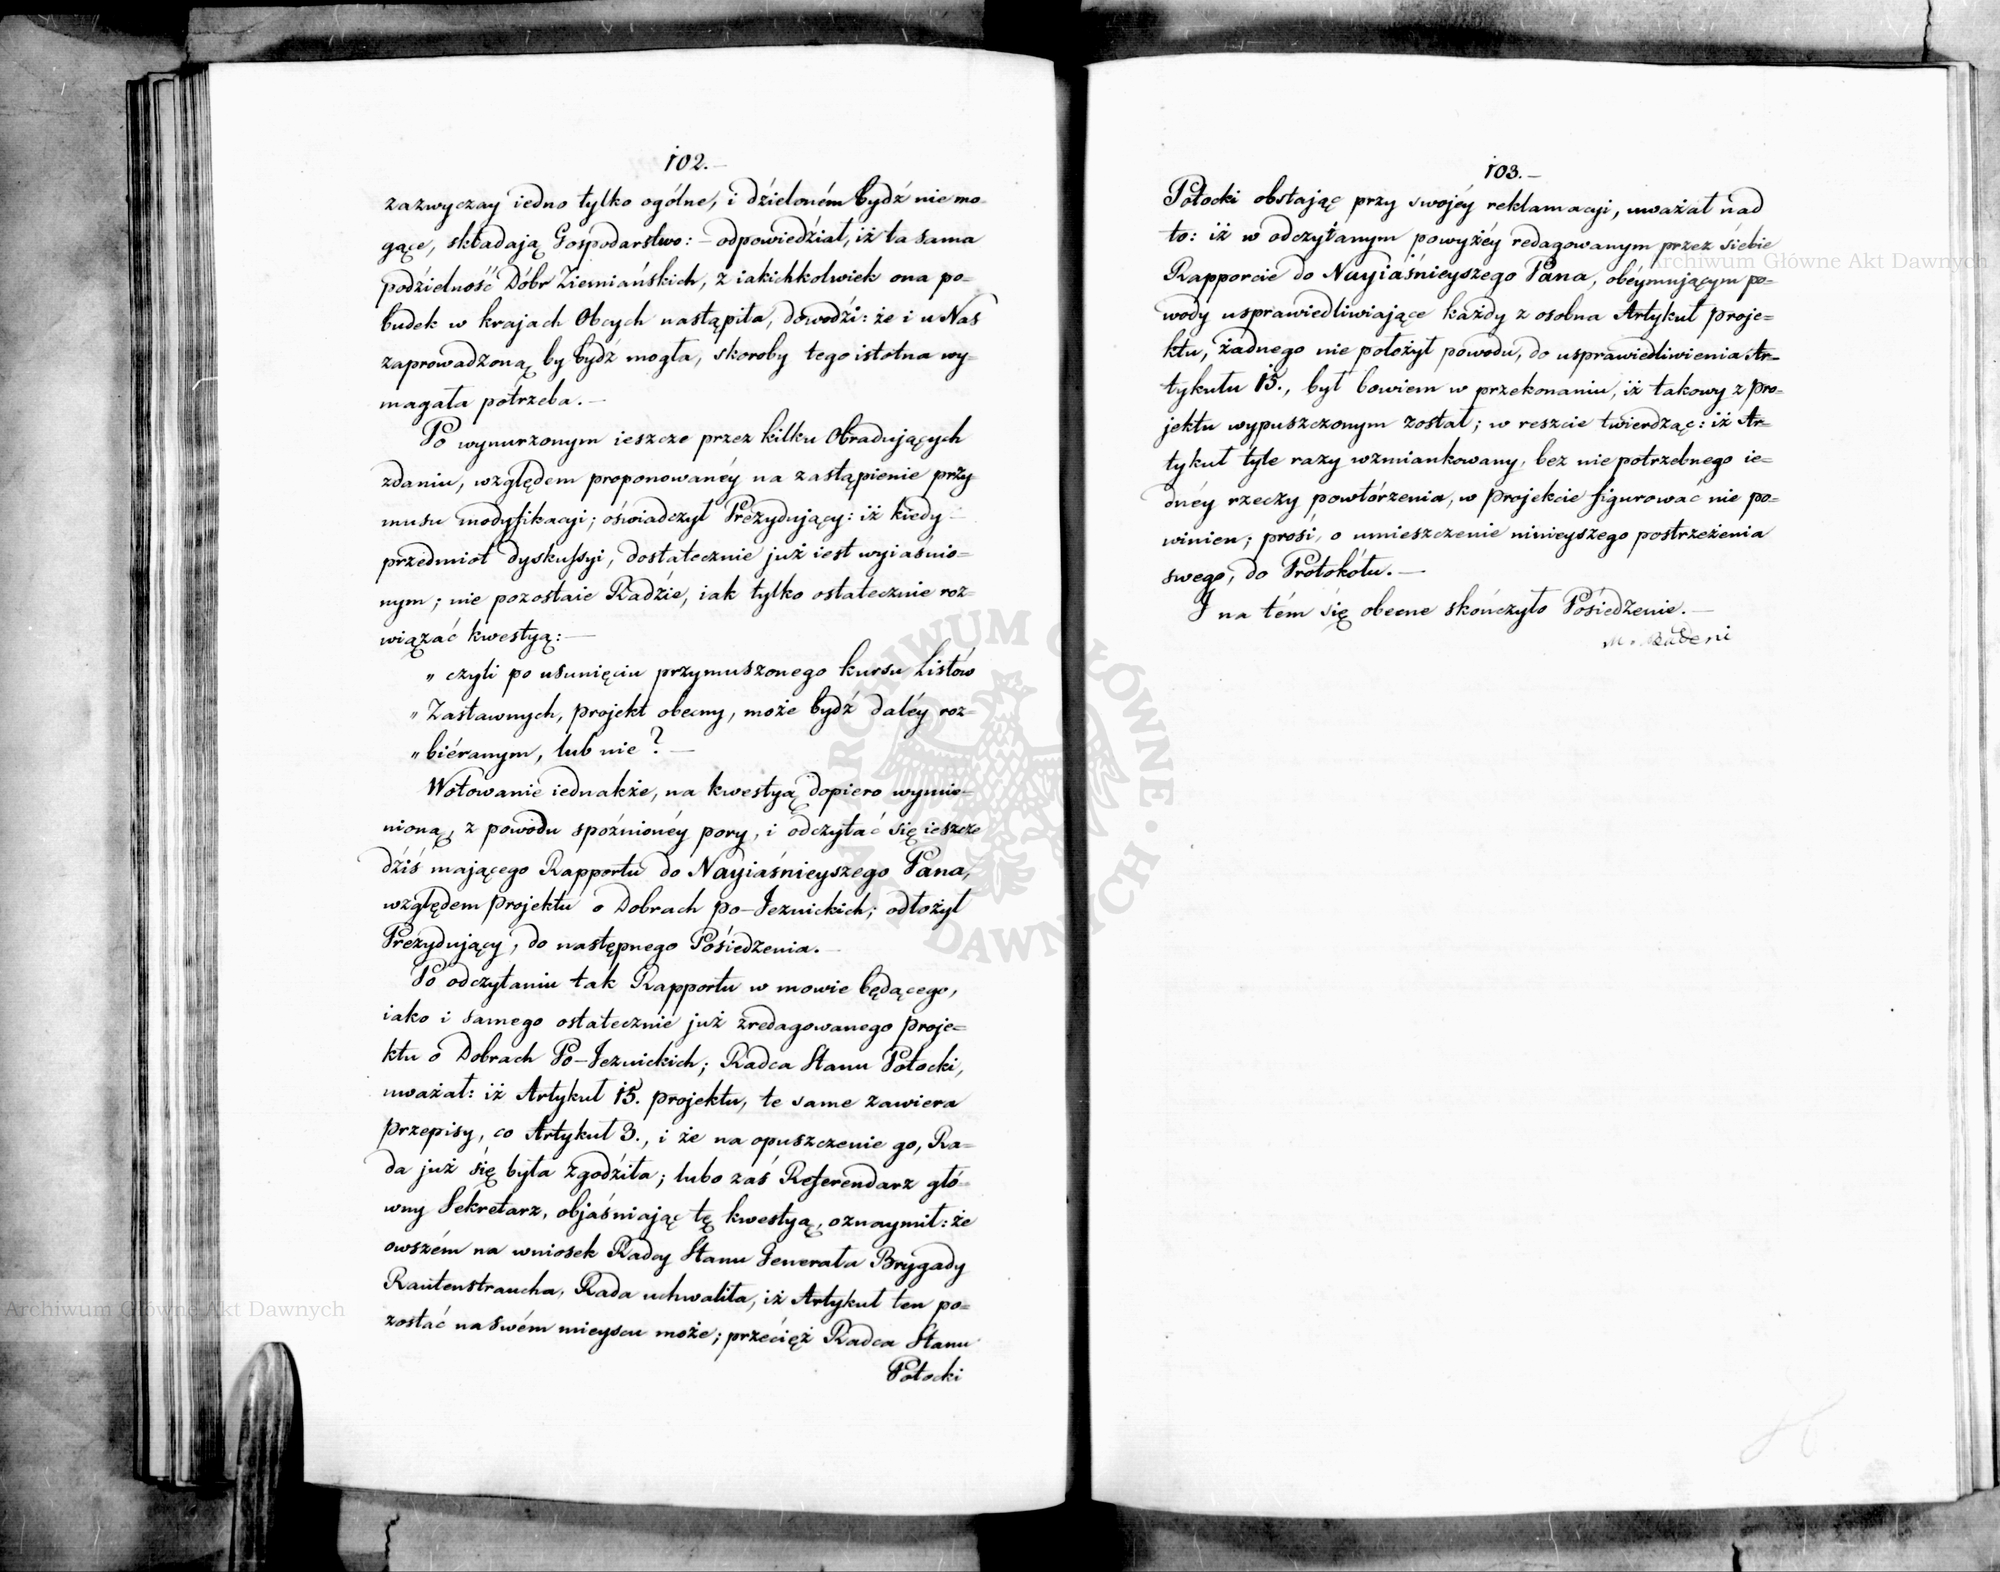 102.—
zazwyczay iedno tylko ogólne, i dzieloném bydź nie mo-
gące, składają Gospodarstwo: – odpowiedział, iż ta sama
podzielność Dóbr Ziemiańskich, z iakichkolwiek ona po-
budek w krajach Obcych nastąpiła, dowodzi: że i u Nas
zaprowadzoną by bydź mogła, skoroby tego istotna wy-
magała potrzeba.—
Po wynurzonym ieszcze przez kilku Obradujących
zdaniu, względem proponowanéy na zastąpienie przy-
musu modyfikacyi; oświadczył Prezydujący: iż kiedy
przedmiot dyskussyi, dostatecznie już iest wyiaśnio-
nym; nie pozostaie Radzie, iak tylko ostatecznie roz-
wiązać kwestyą:—
„ czyli po usunięciu przymuszonego kursu Listów
„ Zastawnych, projekt obecny, może bydź daléy roz-
„ biéranym, lub nie? —
Wotowanie iednakże, na kwestyą dopiero wymie-
nioną, z powodu spoźnionéy pory, i odczytać się ieszcze
dziś mającego Rapportu do Nayiaśnieyszego Pana,
względem projektu o Dobrach po-Jezuickich; odłożył
Prezydujący, do następnego Posiedzenia.—
Po odczytaniu tak Rapportu w mowie będącego,
iako i samego ostatecznie już zredagowanego proje-
ktu o Dobrach Po-Jezuickich; Radca Stanu Potocki,
uważał: iż Artykuł 15. projektu, te same zawiera
przepisy, co Artykuł 3., i że na opuszczenie go, Ra-
da już się była zgodziła; lubo zaś Referendarz głó-
wny Sekretarz, objaśniając tę kwestyą, oznaymił: że
owszém na wniosek Radcy Stanu Jenerała Brygady
Rautenstraucha, Rada uchwaliła, iż Artykuł ten po-
zostać na swém mieyscu może; przecięż Radca Stanu
Potocki
103.—
Potocki obstając przy swojéy reklamacyi, uważał nad
to: iż w odczytanym powyżéy redagowanym przez siebie
Rapporcie do Nayiaśnieyszego Pana, obéymującym po-
wody usprawiedliwiające każdy z osobna Artykuł proje-
ktu, żadnego nie położył powodu, do usprawiedliwienia Ar-
tykułu 15., był bowiem w przekonaniu, iż takowy z pro-
jektu wypuszczonym został; w reszcie twierdząc: iż Ar-
tykuł tyle razy wzmiankowany, bez nie potrzebnego ie-
dnéy rzeczy powtórzenia, w projekcie figurować nie po-
winien; prosi, o umieszczenie ninieyszego postrzeżenia
swego, do Protokółu.—
I na tém się obecne skończyło Posiedzenie.—
M. Badeni
Archiwum Główne Akt Dawnych
Archiwum Główne Akt Dawnych
ARCHIWUM GŁÓWNE AKT DAWNYCH